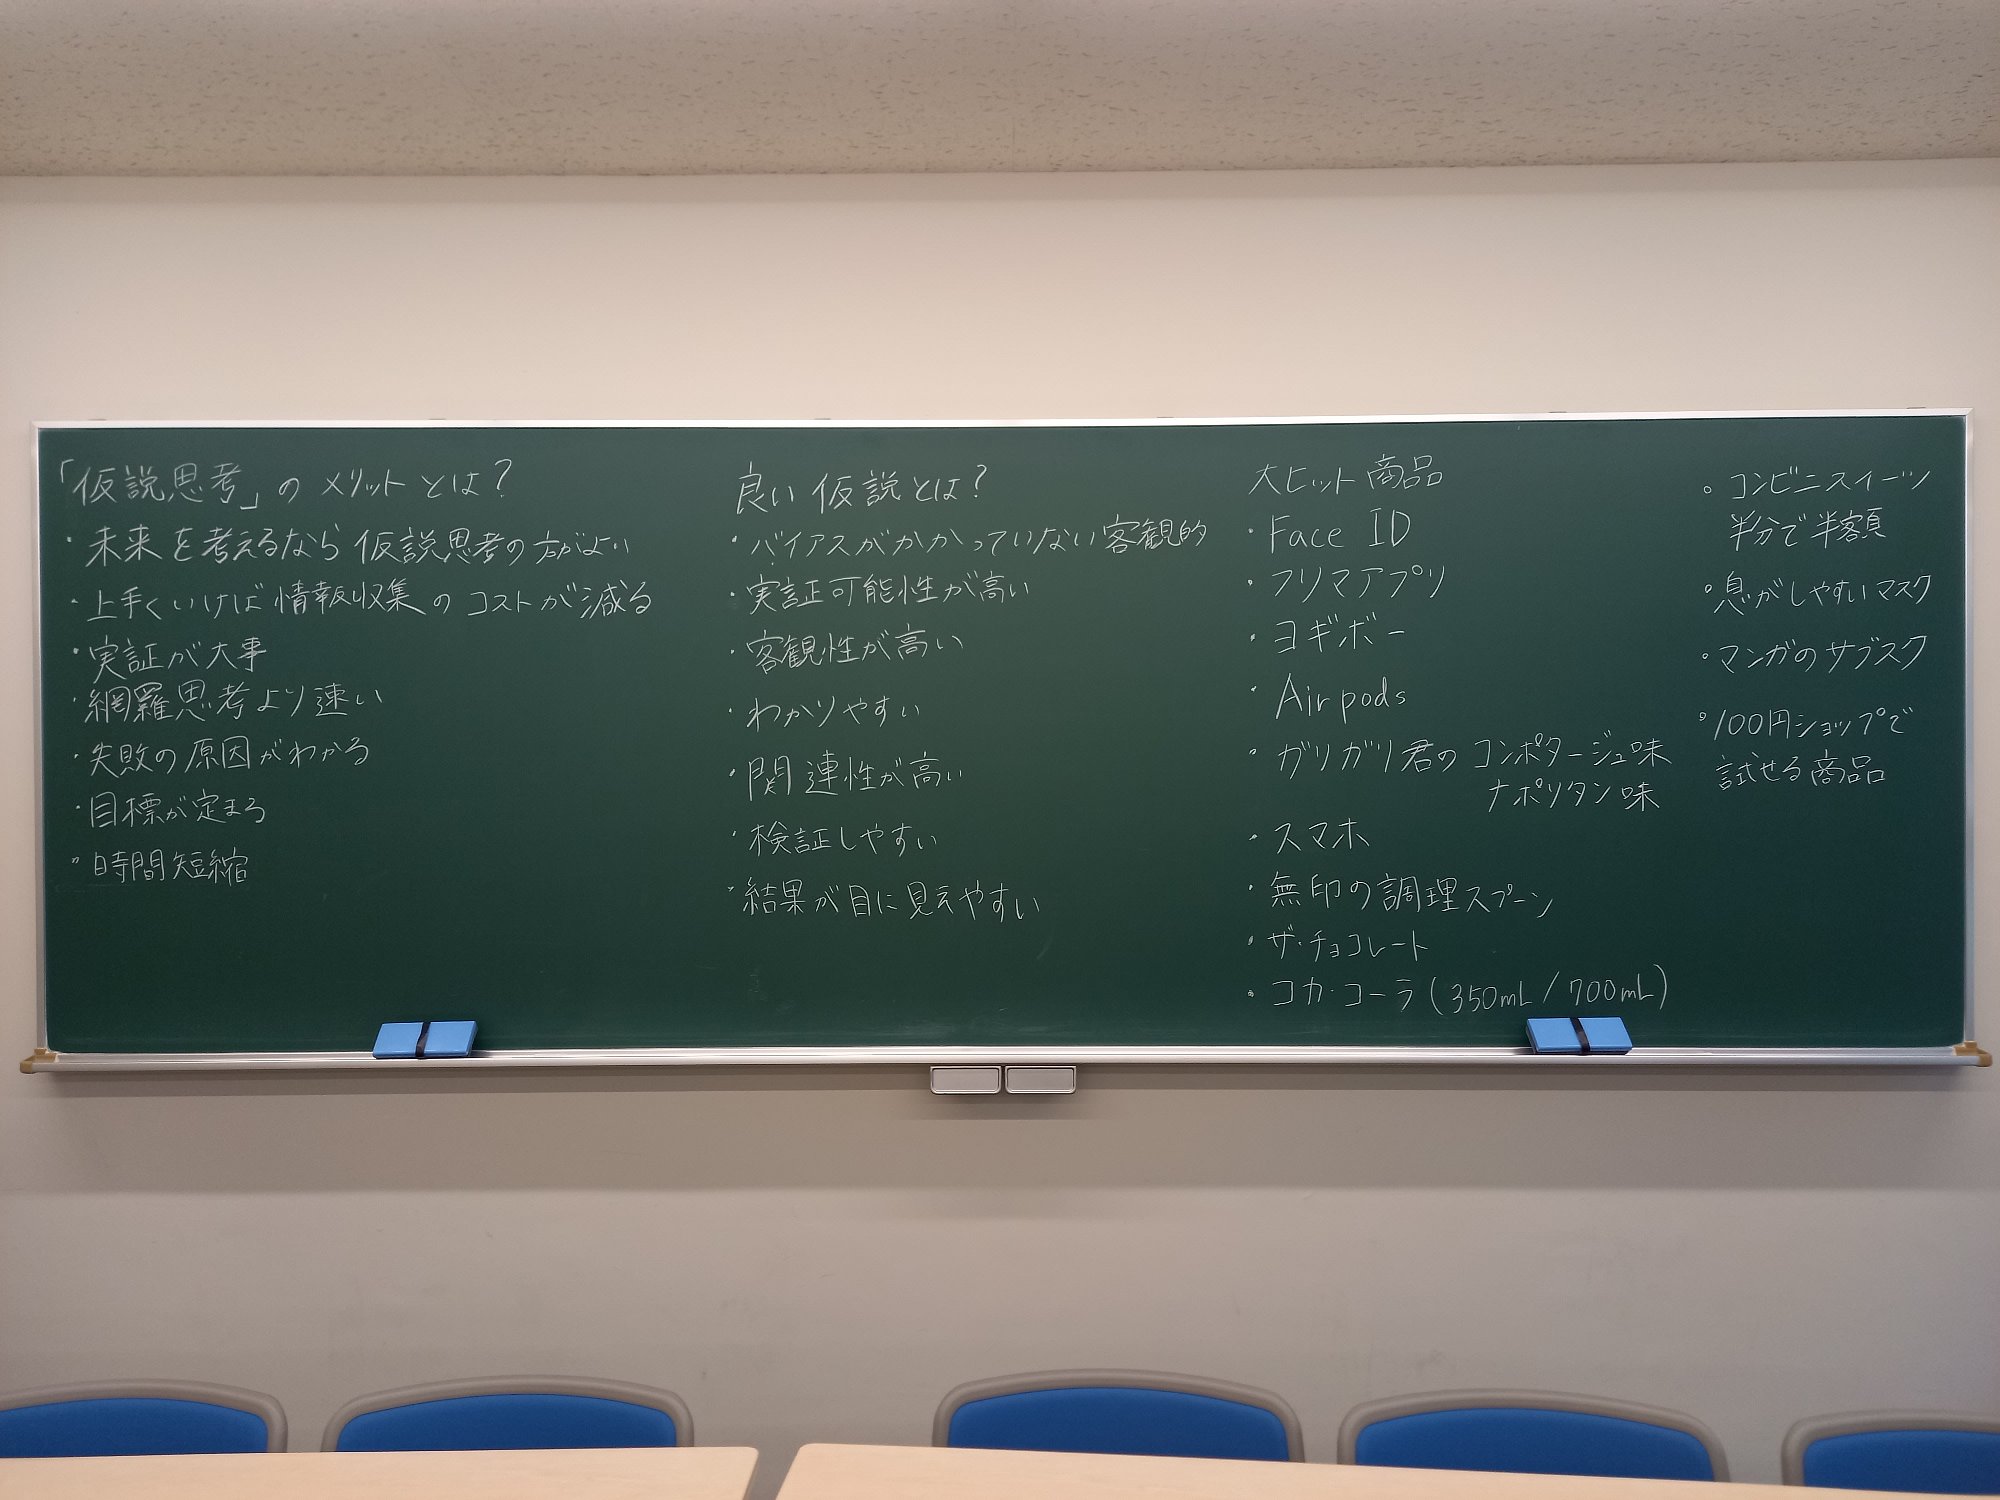 「仮説思考」のメリットとは?
・未来を考えるなら仮説思考の方がよい
・上手くいけば情報収集のコストが減る
・実証が大事
・網羅思考より速い
・失敗の原因がわかる
・目標が定まる
・時間短縮
良い仮説とは?
・バイアスがかかっていない客観的
・実証可能性が高い
・客観性が高い
・わかりやすい
・関連性が高い
・検証しやすい
・結果が目に見えやすい
大ヒット商品
・Face ID
・フリマアプリ
・ヨギボー
・Airpods
・ガリガリ君のコンポタージュ味
ナポリタン味
・スマホ
・無印の調理スプーン
・ザ・チョコレート
・コカ・コーラ(350mL/700mL)
。コンビニスイーツ
半分で半額
。息がしやすいマスク
。マンガのサブスク
。100円ショップで
試せる商品